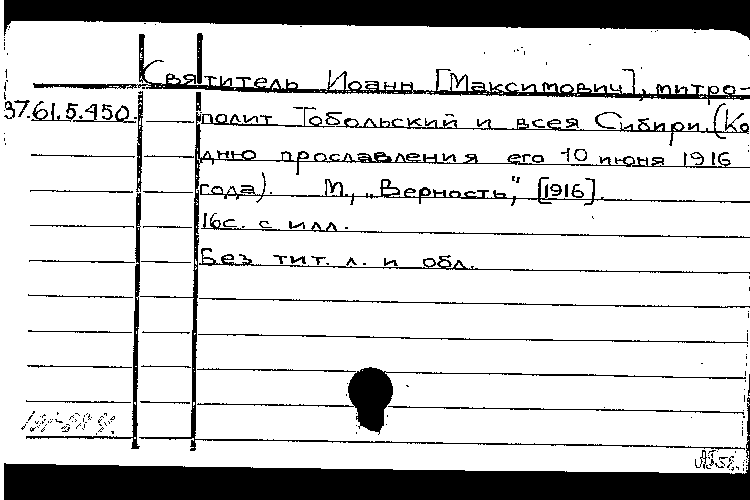 Святитель Иоанн [Максимович], митро-
37.61.5.450. полит Тобольский и всея Сибири. (Ко
дню прославления его 10 июня 1916
года). М., „Верность”, [1916].
16с. с илл.
Без тит. л. и обл.